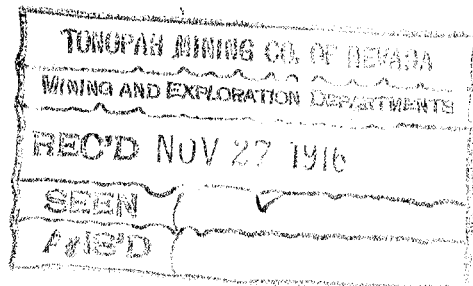 TONOPAH MINING CO. OF NEVADA
MINING AND EXPLORATION DEPARTMENTS
REC'D NOV 27 1916
SEEN
ANS'D